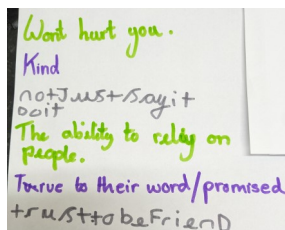 Wont hurt you.
Kind
not Just say it
Do it
The ability to relly on
people.
Turue to their word/promised
trust to be FrienD